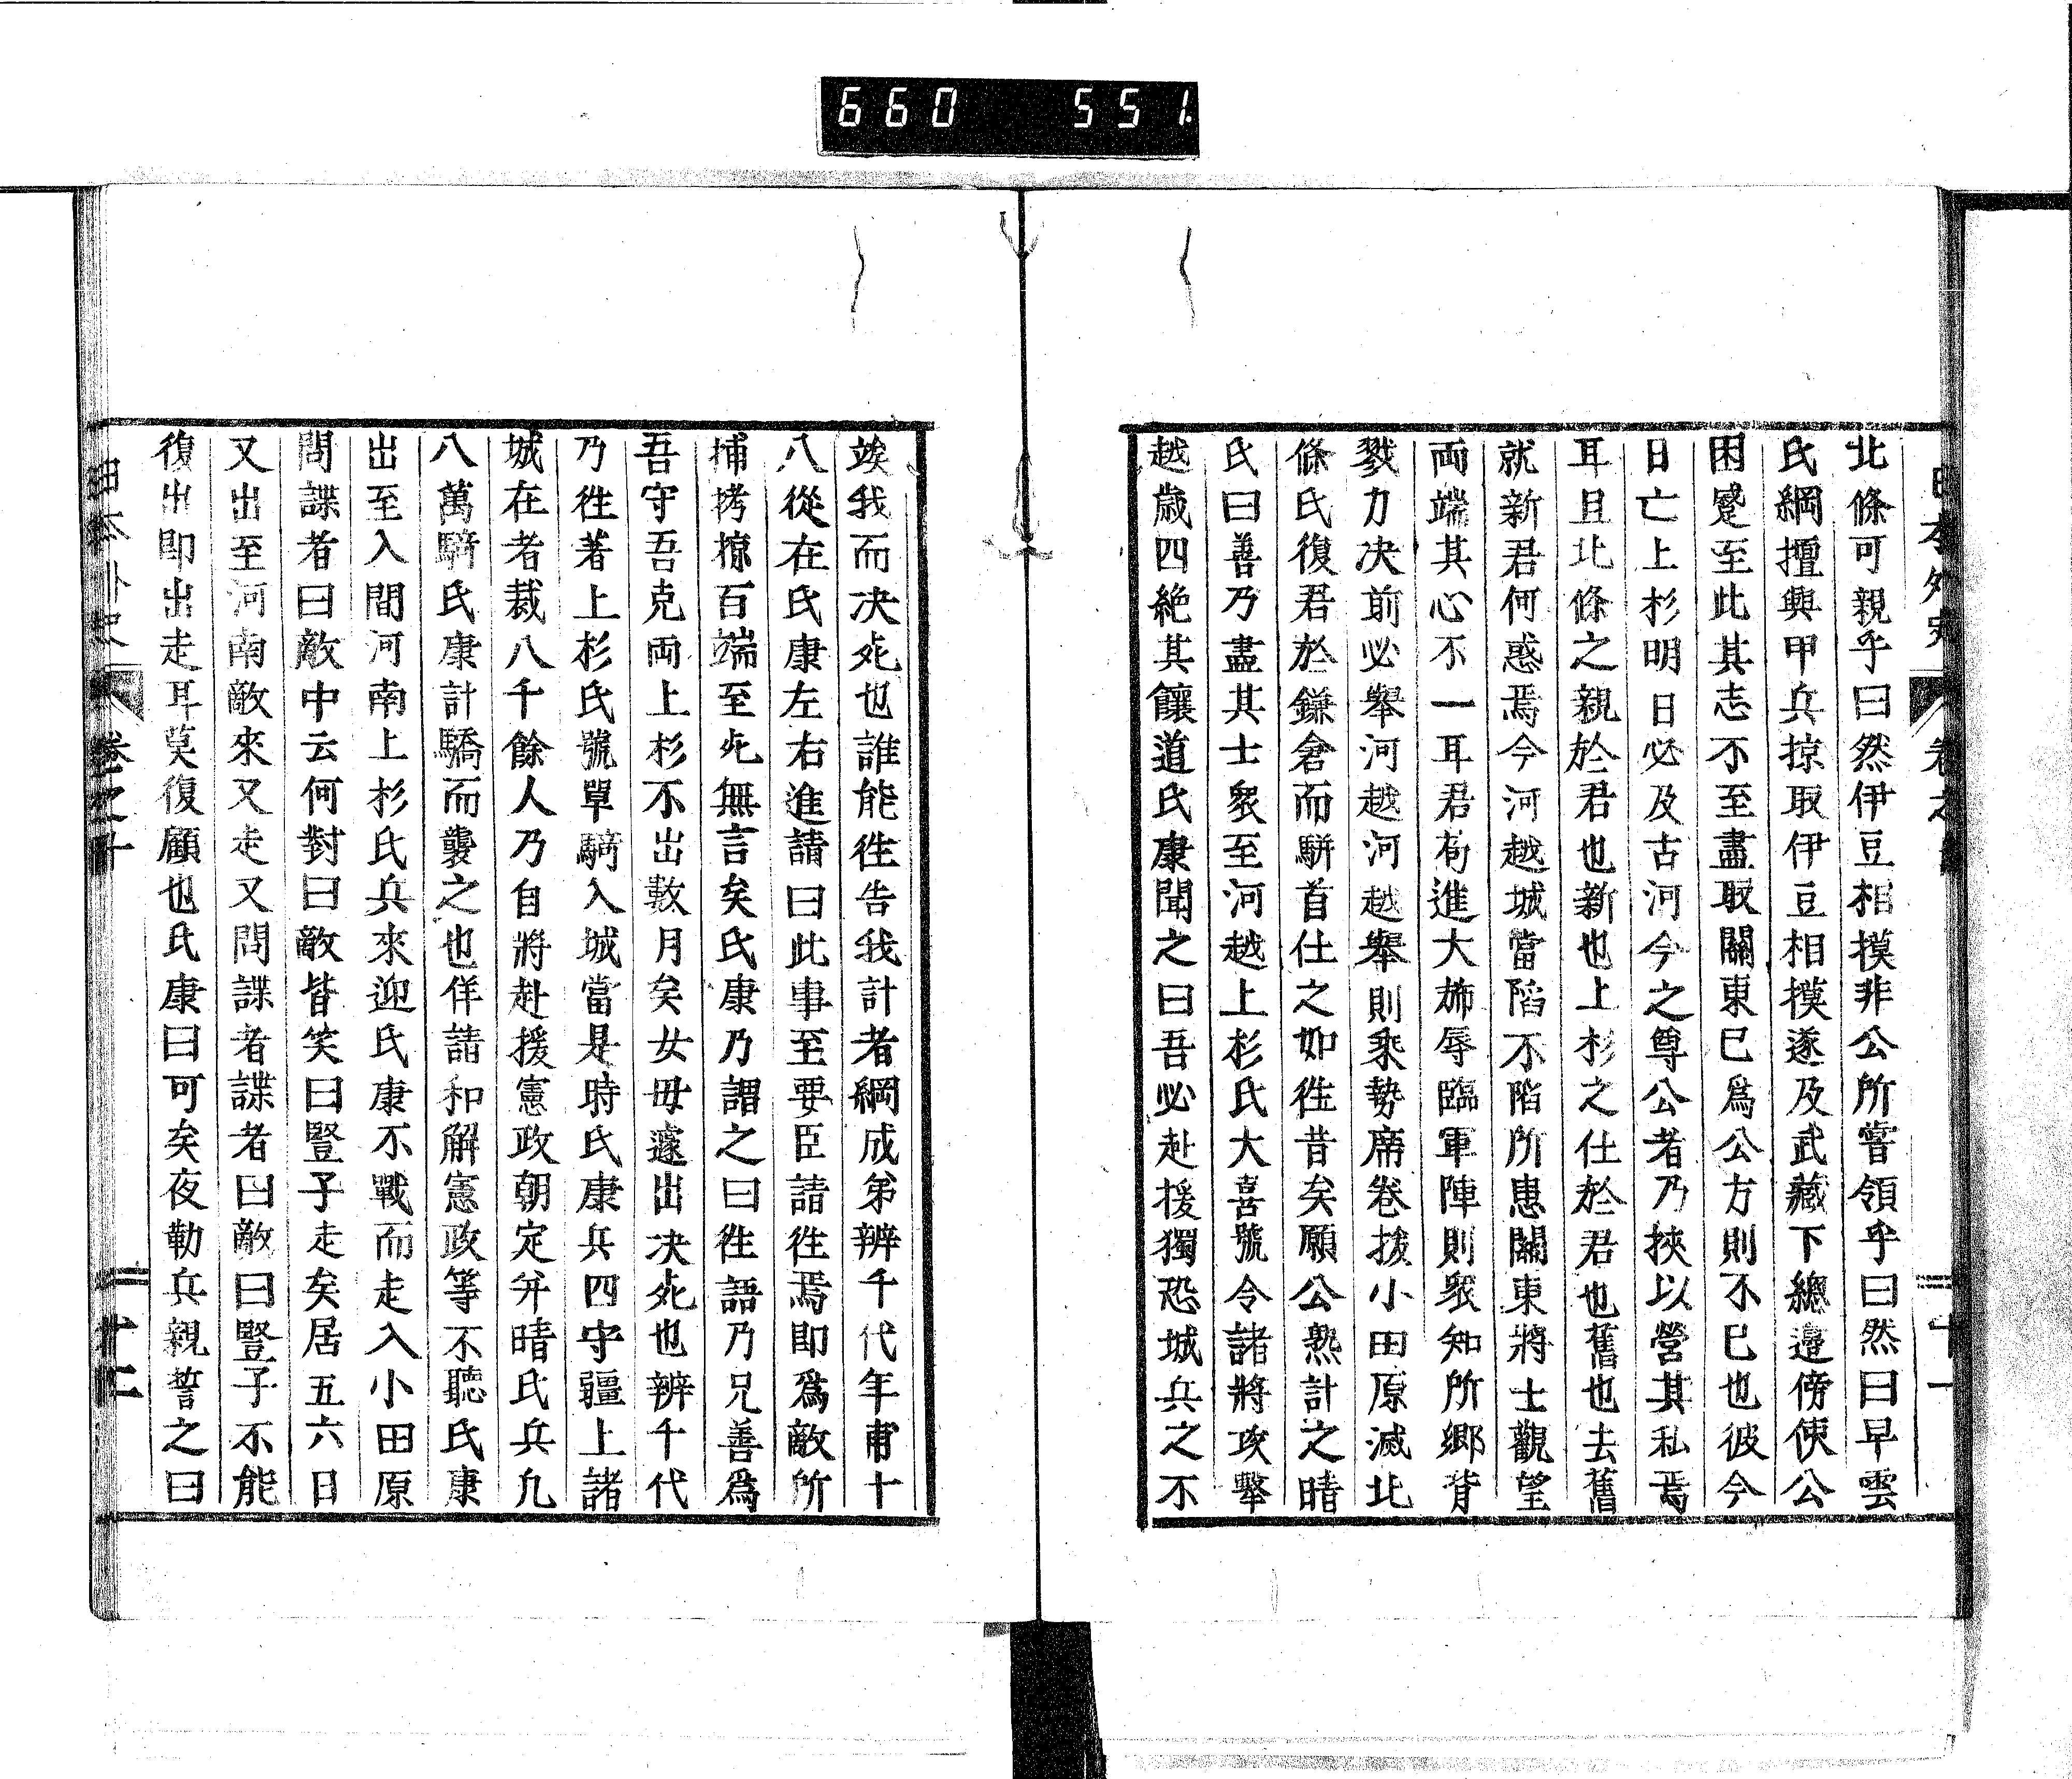 660 551.
日本外史 卷之十 二十一
北條可親乎曰然伊豆相摸非公所嘗領乎曰然曰早雲
氏綱擅興甲兵掠取伊豆相摸遂及武藏下總邉傍使公
困蹙至此其志不至盡取關東已爲公方則不已也彼今
日亡上杉明日必及古河今之尊公者乃挾以營其私焉
耳且北條之親於君也新也上杉之仕於君也舊也去舊
就新君何惑焉今河越城當陷不陷所患關東將士觀望
兩端其心不一耳君苟進大旆辱臨軍陣則衆知所郷背
戮力决前必舉河越河越舉則乘勢席卷拔小田原滅北
條氏復君於鎌倉而駢首仕之如徃昔矣願公熟計之晴
氏曰善乃盡其士衆至河越上杉氏大喜號令諸將攻擊
越歲四絶其饟道氏康聞之曰吾必赴援獨恐城兵之不
竢我而决死也誰能徃告我計者綱成弟辨千代年甫十
八從在氏康左右進請曰此事至要臣請徃焉即爲敵所
捕拷掠百端至死無言矣氏康乃謂之曰徃語乃兄善爲
吾守吾克兩上杉不出數月矣女毋遽出决死也辨千代
乃徃著上杉氏號單騎入城當是時氏康兵四守疆上諸
城在者裁八千餘人乃自將赴援憲政朝定并晴氏兵凡
八萬騎氏康計驕而襲之也佯請和解憲政等不聽氏康
出至入間河南上杉氏兵來迎氏康不戰而走入小田原
問諜者曰敵中云何對曰敵皆笑曰豎子走矣居五六日
又出至河南敵來又走又問諜者諜者曰敵曰豎子不能
復出即出走耳莫復顧也氏康曰可矣夜勒兵親誓之曰
日本外史 卷之十 二十二